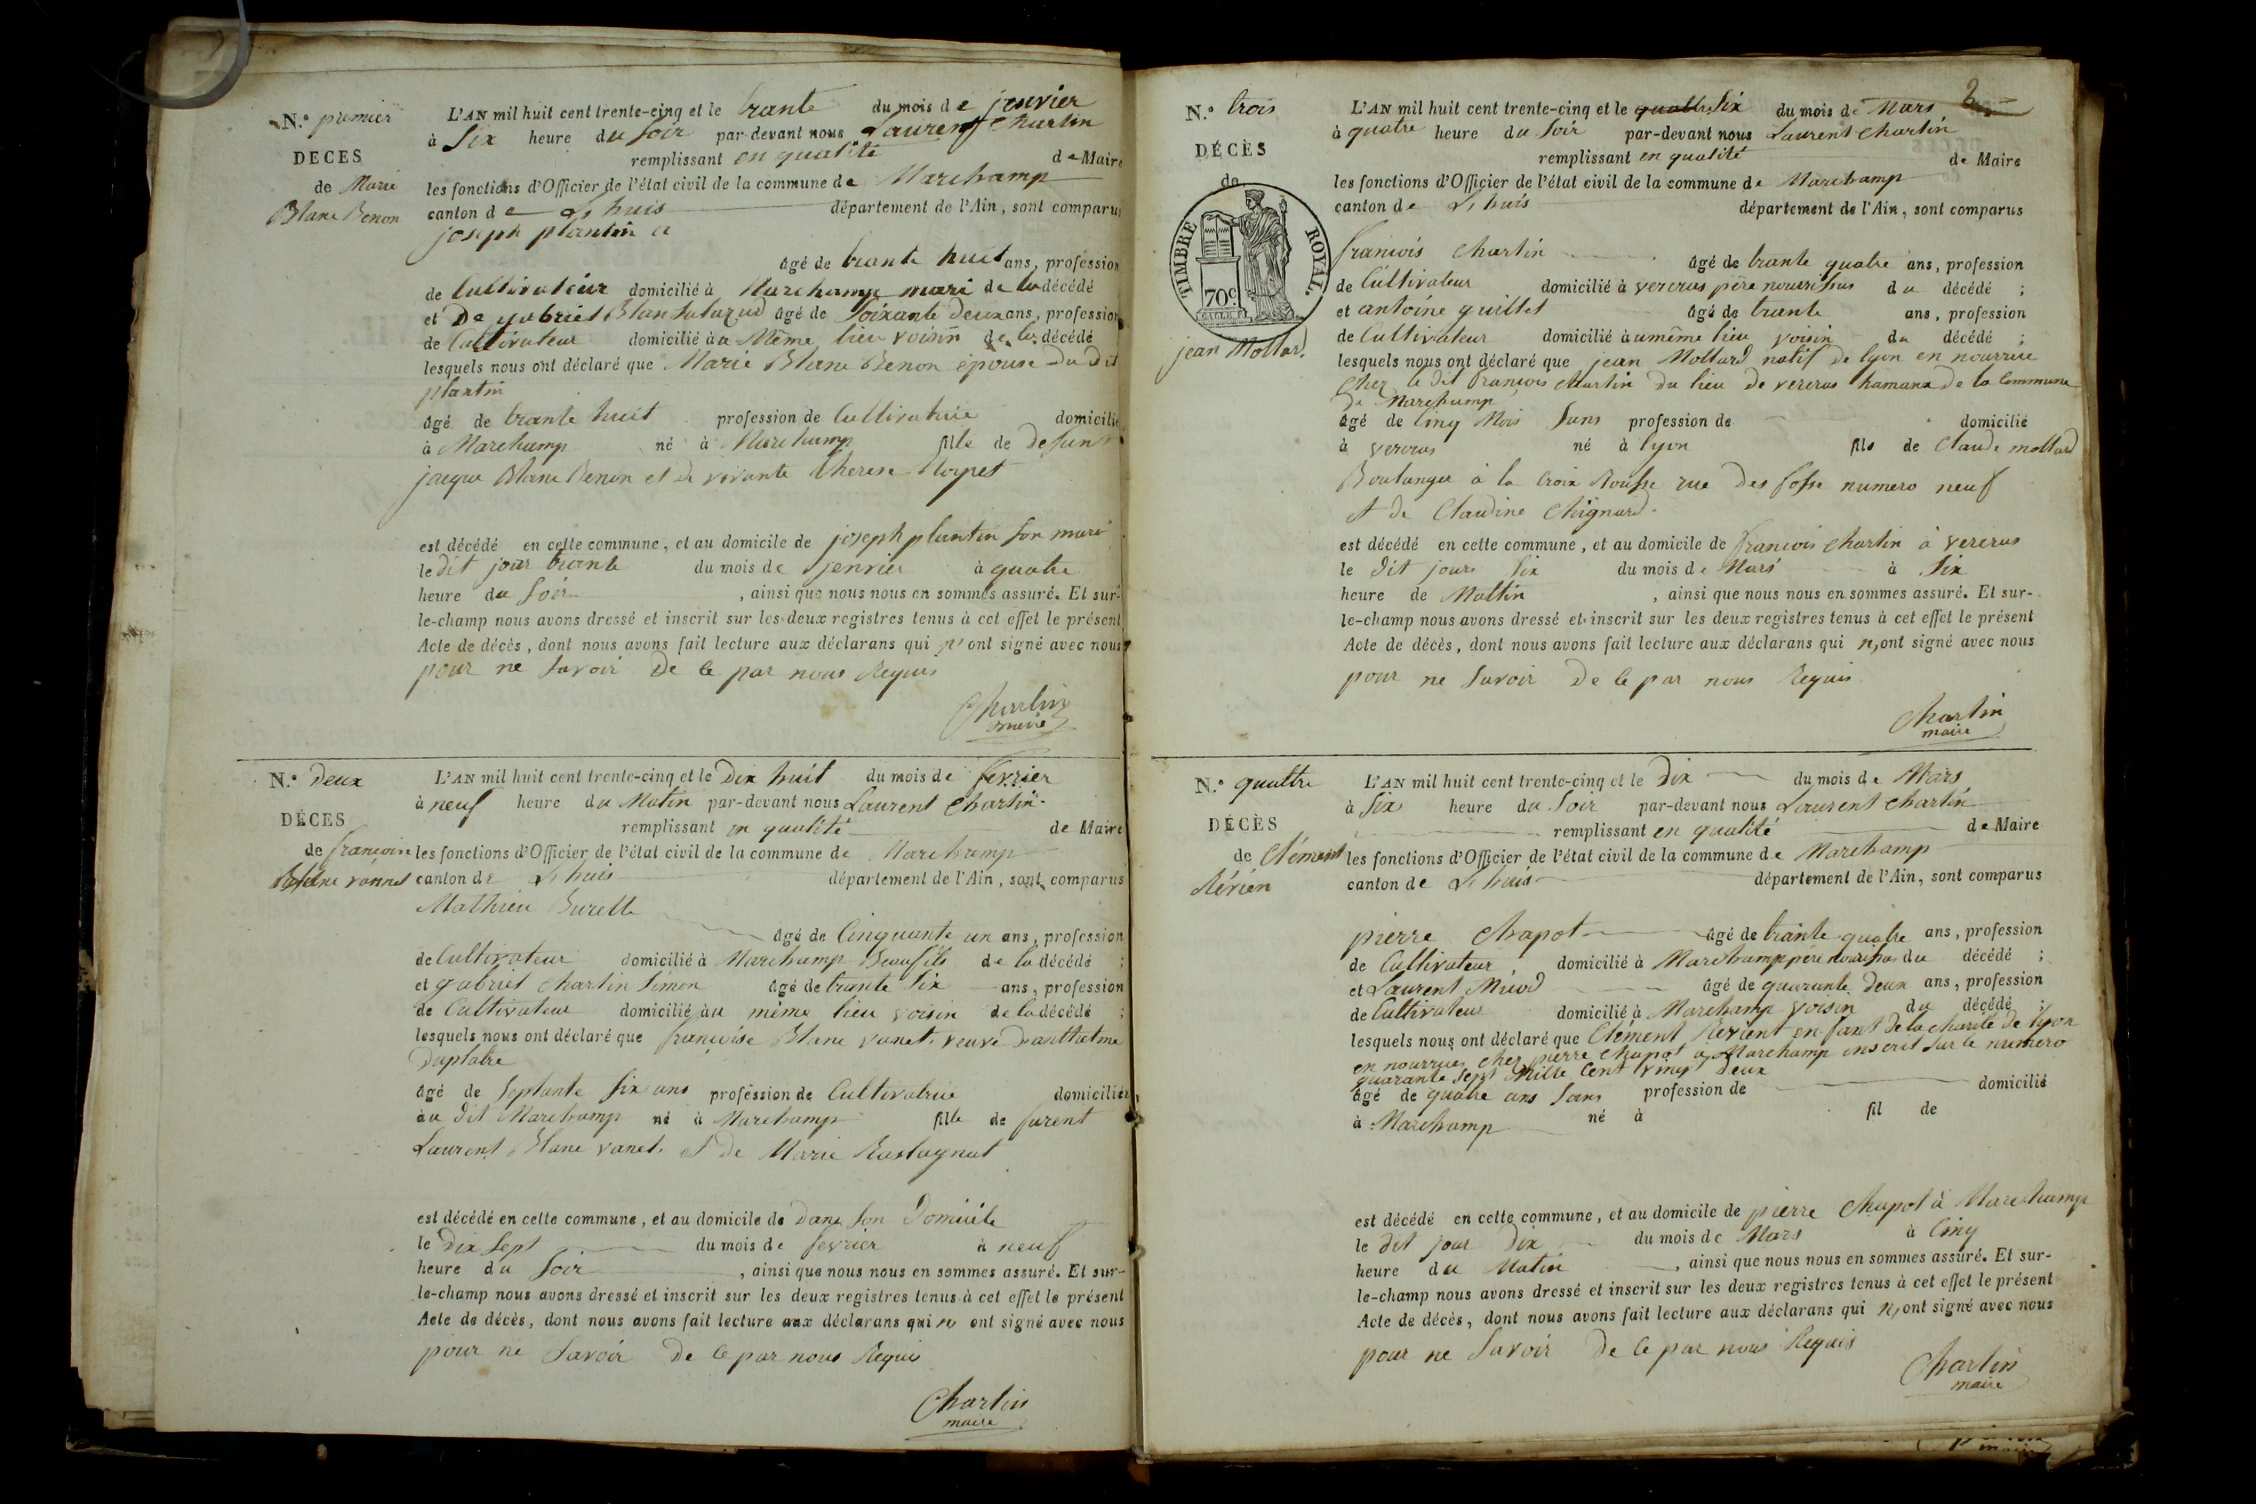 N.º premier
DECES
de Marie
Blanc Benon
L'AN mil huit cent trente-cinq et le trante du mois de jenvier
à Six heure du Soir par-devant nous Laurent Charlin
remplissant en qualité de Maire
les fonctions d'Officier de l'état civil de la commune de Marchamp
canton de Lhuis département de l'Ain, sont comparus
joseph plantin
âgé de trante huit ans, profession
de Cultivateur domicilié à Marchamp mari de la décédé
et De gabriel Blan âgé de Soixante deux ans, profession
de Cultivateur domicilié au Même lieu voisin de la décédé
lesquels nous ont déclaré que Marie Blanc Benon épouse du dit
plantin
âgé de trante huit profession de Cultivatrice domicilié
à Marchamp né à Marchamp fille de defunt
jacque Blanc Benon et de vivante therese
est décédé en cette commune, et au domicile de joseph plantin son mari
le dit jour trante du mois de jenvier à quatre
heure du Soir, ainsi que nous nous en sommes assuré. Et sur-
le-champ nous avons dressé et inscrit sur les deux registres tenus à cet effet le présent
Acte de décès, dont nous avons fait lecture aux déclarans qui n'ont signé avec nous
pour ne Savoir de ce par nous Requis
Charlin
maire
N.º deux
DÉCES
de francoise
vannet
L'AN mil huit cent trente-cinq et le Dix huit du mois de fevrier
à neuf heure du Matin par-devant nous Laurent Charlin
remplissant en qualité de Maire
les fonctions d'Officier de l'état civil de la commune de Marchamp
canton de Lhuis département de l'Ain, sont comparus
Mathieu Burelle
âgé de Cinquante un ans, profession
de Cultivateur domicilié à Marchamp Beaufils de la décédé ;
et gabriel Charlin Simon âgé de trante Six ans, profession
de Cultivateur domicilié au même lieu voisin de la décédé ;
lesquels nous ont déclaré que françoise Blanc vanet veuve
Duplatre
âgé de Septante Six ans profession de Cultivatrice domicilié
au dit Marchamp né à Marchamp fille de furent
Laurent Blanc vanet et de Marie Rostagnat
est décédé en cette commune, et au domicile de dans Son Domicile
le Dix Sept du mois de fevrier à neuf
heure du Soir, ainsi que nous nous en sommes assuré. Et sur-
le-champ nous avons dressé et inscrit sur les deux registres tenus à cet effet le présent
Acte de décès, dont nous avons fait lecture aux déclarans qui n ont signé avec nous
pour ne Savoir de ce par nous Requis
Charlin
maire
2
N.º trois
DÉCÈS
de
TIMBRE ROYAL.
70c.
jean Mollard
L'AN mil huit cent trente-cinq et le quattre Six du mois de Mars
à quatre heure du Soir par-devant nous Laurent Charlin
remplissant en qualité de Maire
les fonctions d'Officier de l'état civil de la commune de Marchamp
canton de Lhuis département de l'Ain, sont comparus
francois Charlin âgé de trante quatre ans, profession
de Cultivateur domicilié à vercras père nourissus du décédé ;
et antoine quillet âgé de trante ans, profession
de Cultivateur domicilié au même lieu voisin du décédé ;
lesquels nous ont déclaré que jean Mollard natif de lyon en nourrice
Chez le dit francois Charlin du lieu de vercras hamaux de la Commune
de Marchamp
âgé de Cinq Mois Sans profession de domicilié
à vercras né à lyon fils de Claude mollard
Boulanger à la Croix Rousse rue des fosse numero neuf
et de Claudine Chignard.
est décédé en cette commune, et au domicile de francois Charlin à vercras
le dit jour Six du mois de Mars à Six
heure de Mattin, ainsi que nous nous en sommes assuré. Et sur-
le-champ nous avons dressé et inscrit sur les deux registres tenus à cet effet le présent
Acte de décès, dont nous avons fait lecture aux déclarans qui n'ont signé avec nous
pour ne Savoir de ce par nous Requis
Charlin
maire
N.º quattre
DÉCÈS
de Clément
Révien
L'AN mil huit cent trente-cinq et le Dix du mois de Mars
à Six heure du Soir par-devant nous Laurent Charlin
remplissant en qualité de Maire
les fonctions d'Officier de l'état civil de la commune de Marchamp
canton de Lhuis département de l'Ain, sont comparus
pierre Chapot âgé de trante quatre ans, profession
de Cultivateur domicilié à Marchamp père nourissus du décédé ;
et Laurent âgé de quarante Deux ans, profession
de Cultivateur domicilié à Marchamp voisin du décédé ;
lesquels nous ont déclaré que Clément Revient enfant de la charité de lyon
en nourrice chez pierre Chapot a Marchamp inscrit Sur le numero
quarante Sept Mille Cent vingt deux
âgé de quatre ans Sans profession de domicilié
à Marchamp né à fil de
est décédé en cette commune, et au domicile de pierre Chapot à Marchamp
le dit jour Dix du mois de Mars à Cinq
heure du Matin, ainsi que nous nous en sommes assuré. Et sur-
le-champ nous avons dressé et inscrit sur les deux registres tenus à cet effet le présent
Acte de décès, dont nous avons fait lecture aux déclarans qui n'ont signé avec nous
pour ne Savoir de ce par nous Requis
Charlin
maire